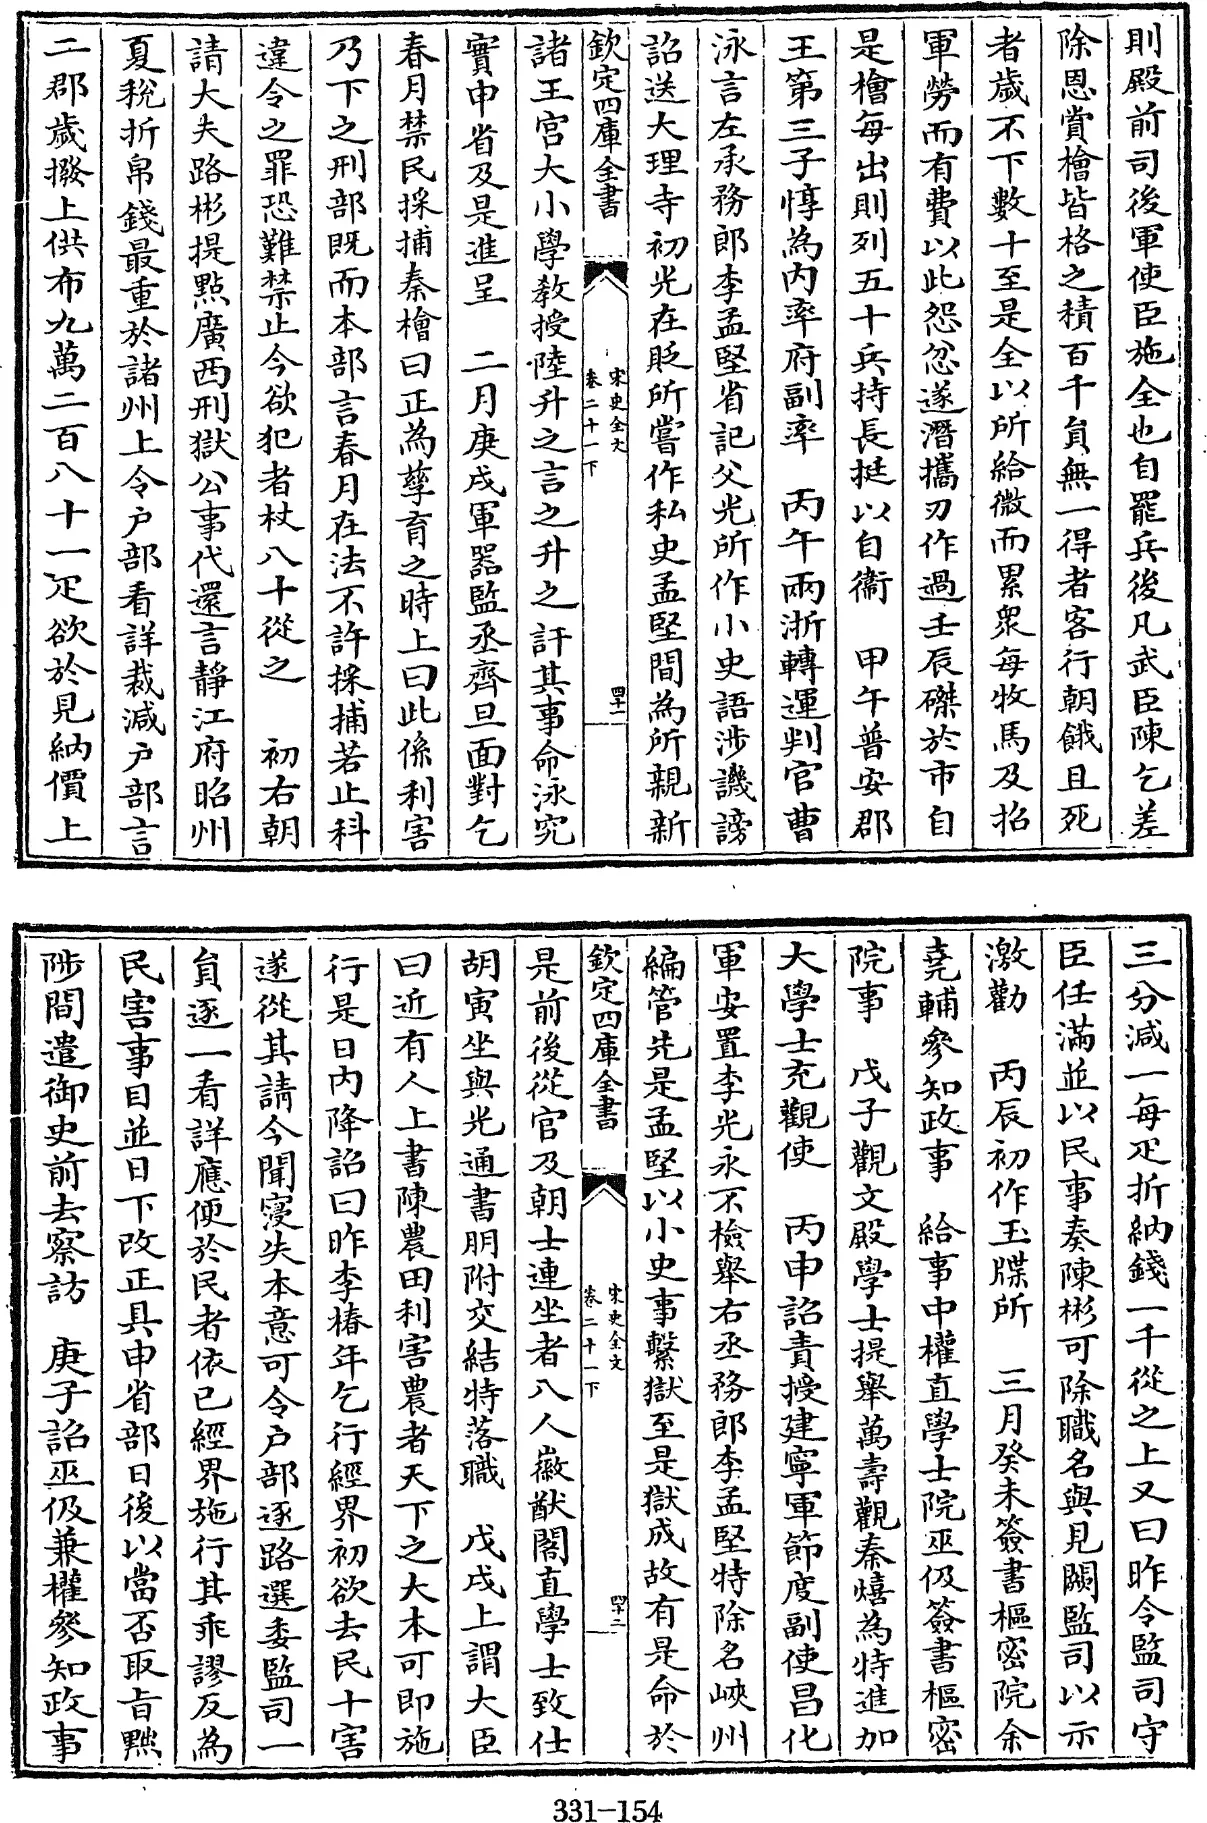 則殿前司後軍使臣施全也自罷兵後凡武臣陳乞差
除恩賞檜皆格之積百千員無一得者客行朝餓且死
者歲不下數十至是全以所給微而累衆每牧馬及招
軍勞而有費以此怨忿遂潛攜刃作過壬辰磔於市自
是檜每出則列五十兵持長挺以自衞　甲午普安郡
王第三子惇為內率府副率　丙午兩浙轉運判官曹
泳言左承務郎李孟堅省記父光所作小史語涉譏謗
詔送大理寺初光在貶所嘗作私史孟堅間為所親新
欽定四庫全書
宋史全文
卷二十一下
四十一
諸王宮大小學教授陸升之言之升之訐其事命泳究
實申省及是進呈　二月庚戌軍器監丞齊旦面對乞
春月禁民採捕秦檜曰正為孳育之時上曰此係利害
乃下之刑部既而本部言春月在法不許採捕若止科
違令之罪恐難禁止今欲犯者杖八十從之　初右朝
請大夫路彬提點廣西刑獄公事代還言靜江府昭州
夏稅折帛錢最重於諸州上令户部看詳裁減户部言
二郡歲撥上供布九萬二百八十一疋欲於見納價上
三分減一每疋折納錢一千從之上又曰昨令監司守
臣任滿並以民事奏陳彬可除職名與見闕監司以示
激勸　丙辰初作玉牒所　三月癸未簽書樞密院余
堯輔參知政事　給事中權直學士院巫伋簽書樞密
院事　戊子觀文殿學士提舉萬壽觀秦熺為特進加
大學士充觀使　丙申詔責授建寧軍節度副使昌化
軍安置李光永不檢舉右丞務郎李孟堅特除名峽州
編管先是孟堅以小史事繫獄至是獄成故有是命於
欽定四庫全書
宋史全文
卷二十一下
四十二
是前後從官及朝士連坐者八人徽猷閣直學士致仕
胡寅坐與光通書朋附交結特落職　戊戌上謂大臣
曰近有人上書陳農田利害農者天下之大本可即施
行是日內降詔曰昨李椿年乞行經界初欲去民十害
遂從其請今聞寖失本意可令户部逐路選委監司一
員逐一看詳應便於民者依已經界施行其乖謬反為
民害事目並日下改正具申省部日後以當否取旨黜
陟間遣御史前去察訪　庚子詔巫伋兼權參知政事
331-154